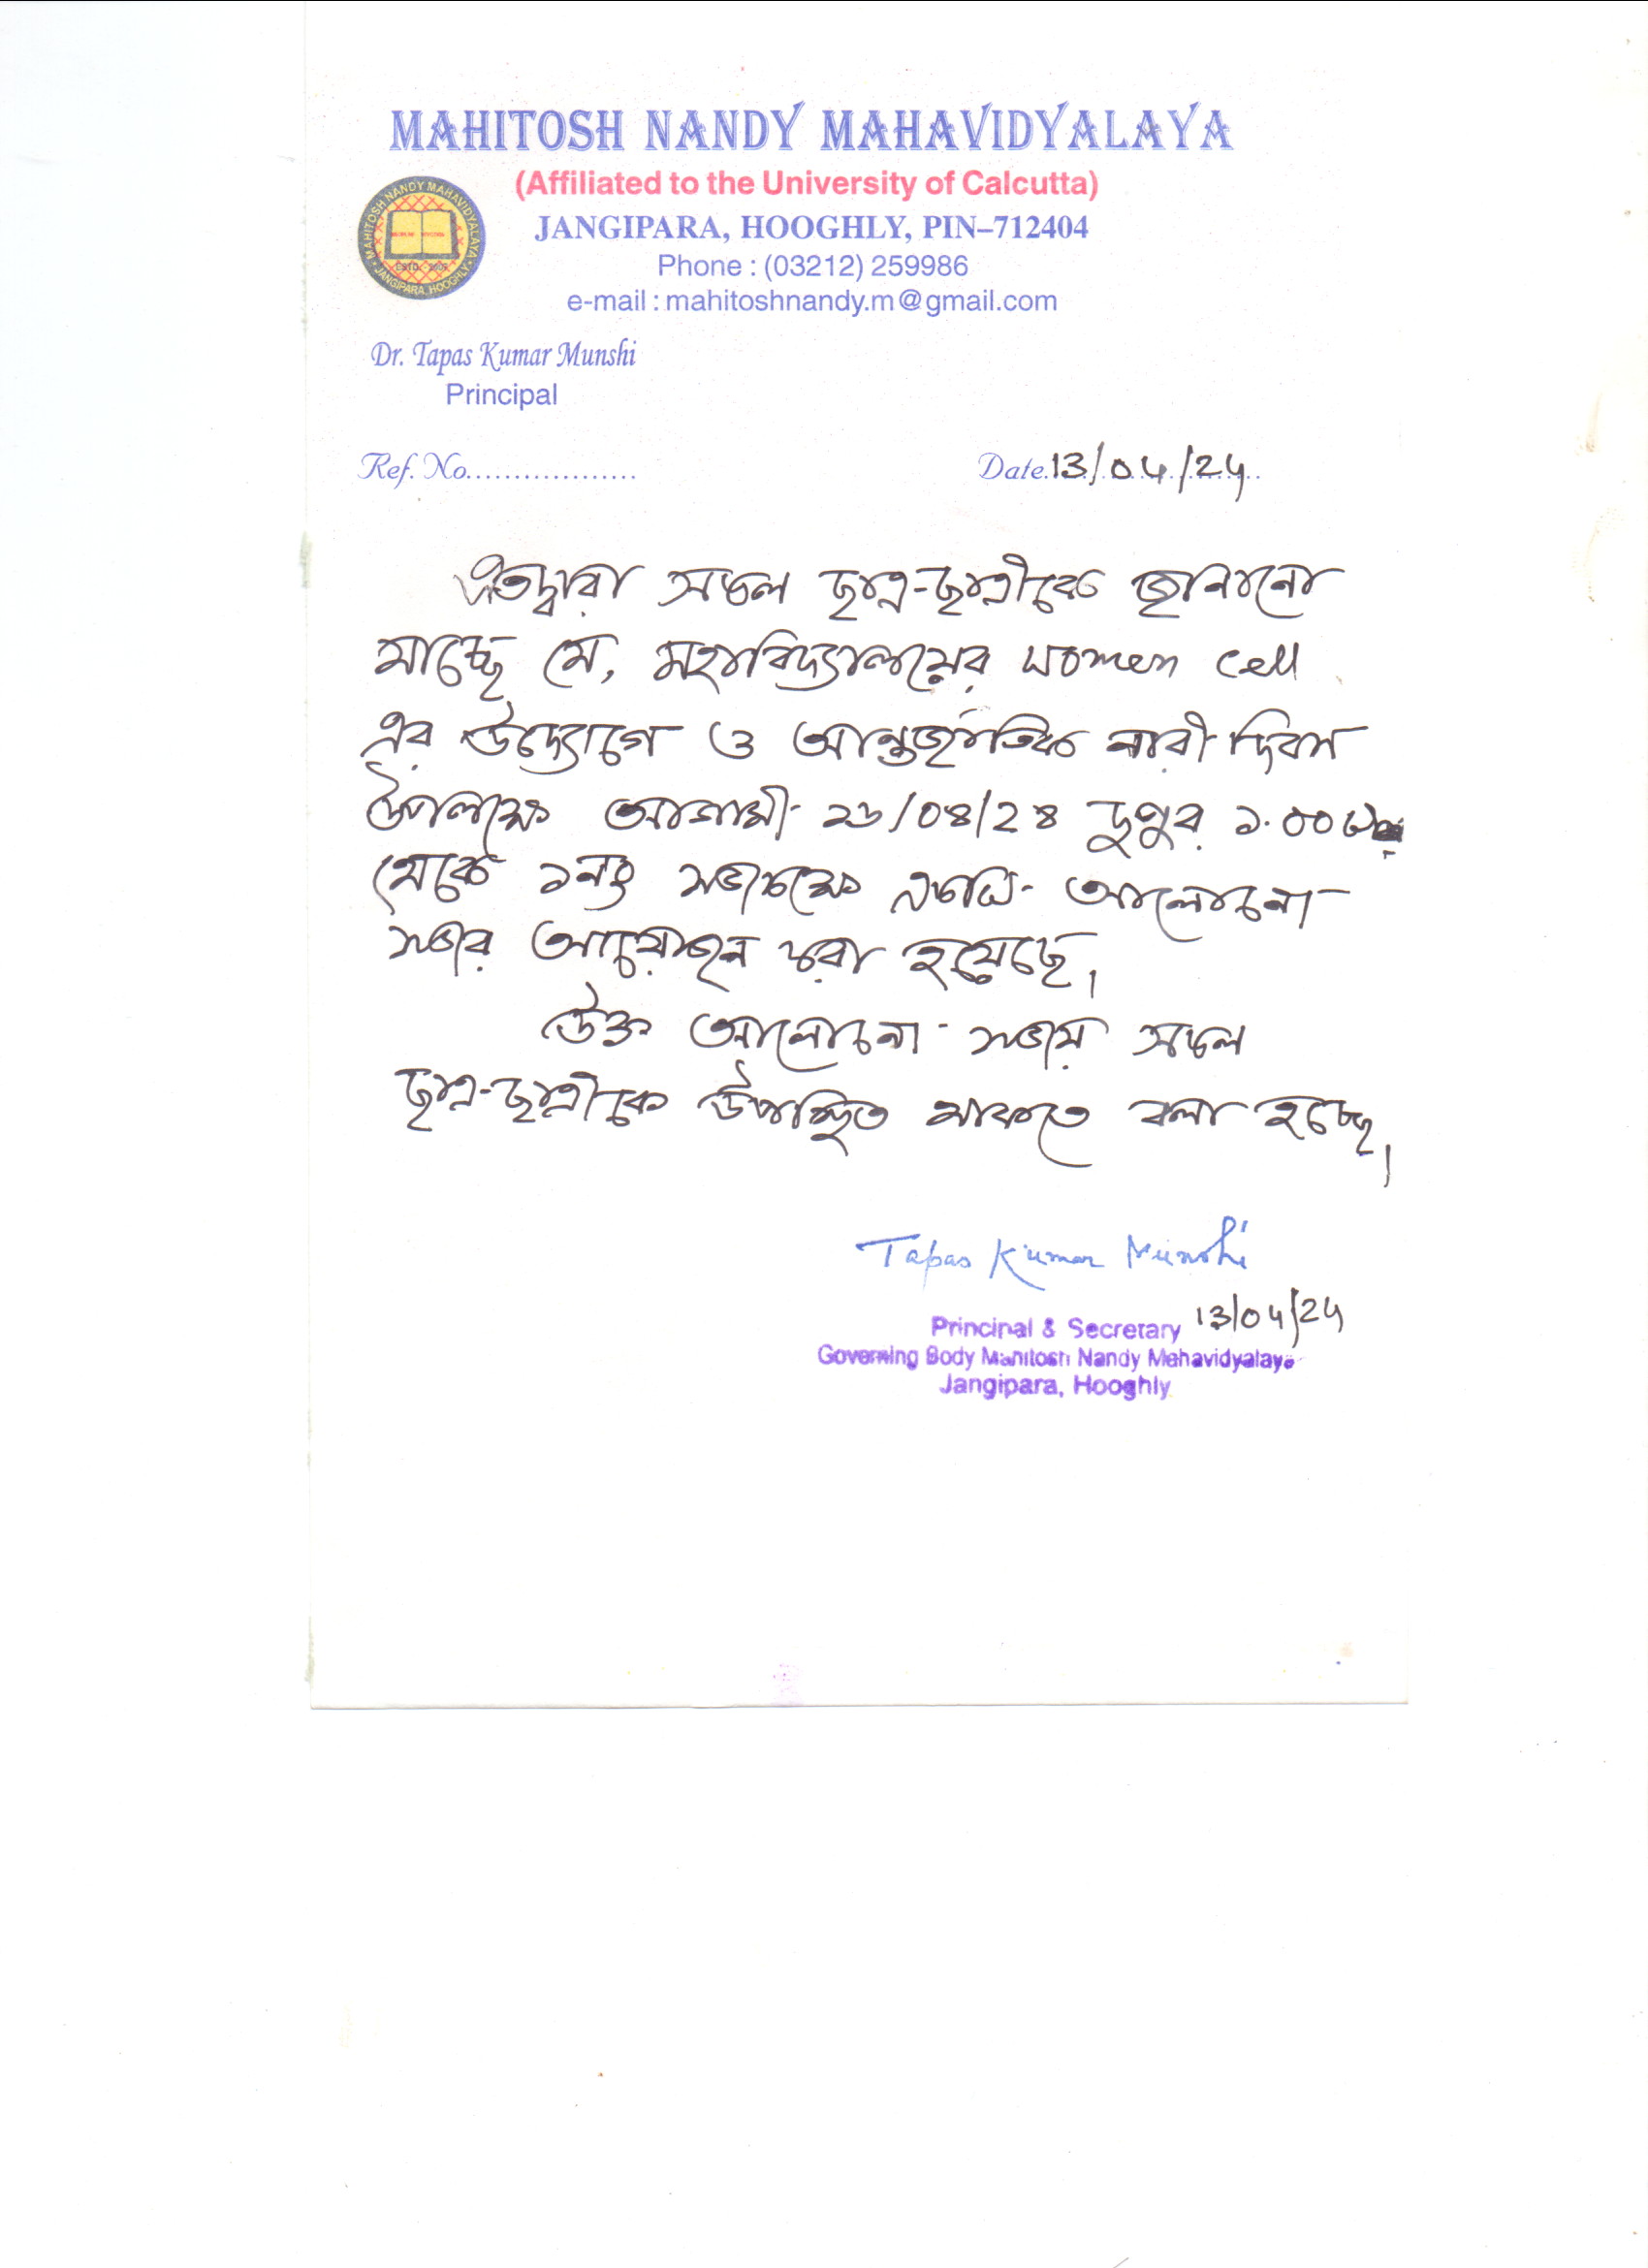 MAHITOSH NANDY MAHAVIDYALAYA
(Affiliated to the University of Calcutta)
JANGIPARA, HOOGHLY, PIN–712404
Phone : (03212) 259986
e-mail : mahitoshnandy.m@gmail.com
MAHITOSH NANDY MAHAVIDYALAYA
JANGIPARA, HOOGHLY
Dr. Tapas Kumar Munshi
Principal
Ref. No..................
Date.13/04/24
এতদ্বারা সকল ছাত্র-ছাত্রীকে জানানো
যাচ্ছে যে, মহাবিদ্যালয়ের women cell
এর উদ্যোগে ও আন্তর্জাতিক নারী দিবস
উপলক্ষে আগামী ১৬/০৪/২৪ দুপুর ১.০০
থেকে ১নং সভাকক্ষে একটি আলোচনা
সভার আয়োজন করা হয়েছে।
উক্ত আলোচনা সভায় সকল
ছাত্র-ছাত্রীকে উপস্থিত থাকতে বলা হচ্ছে।
Tapas Kumar Munshi
13/04/24
Principal & Secretary
Governing Body Mahitosh Nandy Mahavidyalaya
Jangipara, Hooghly